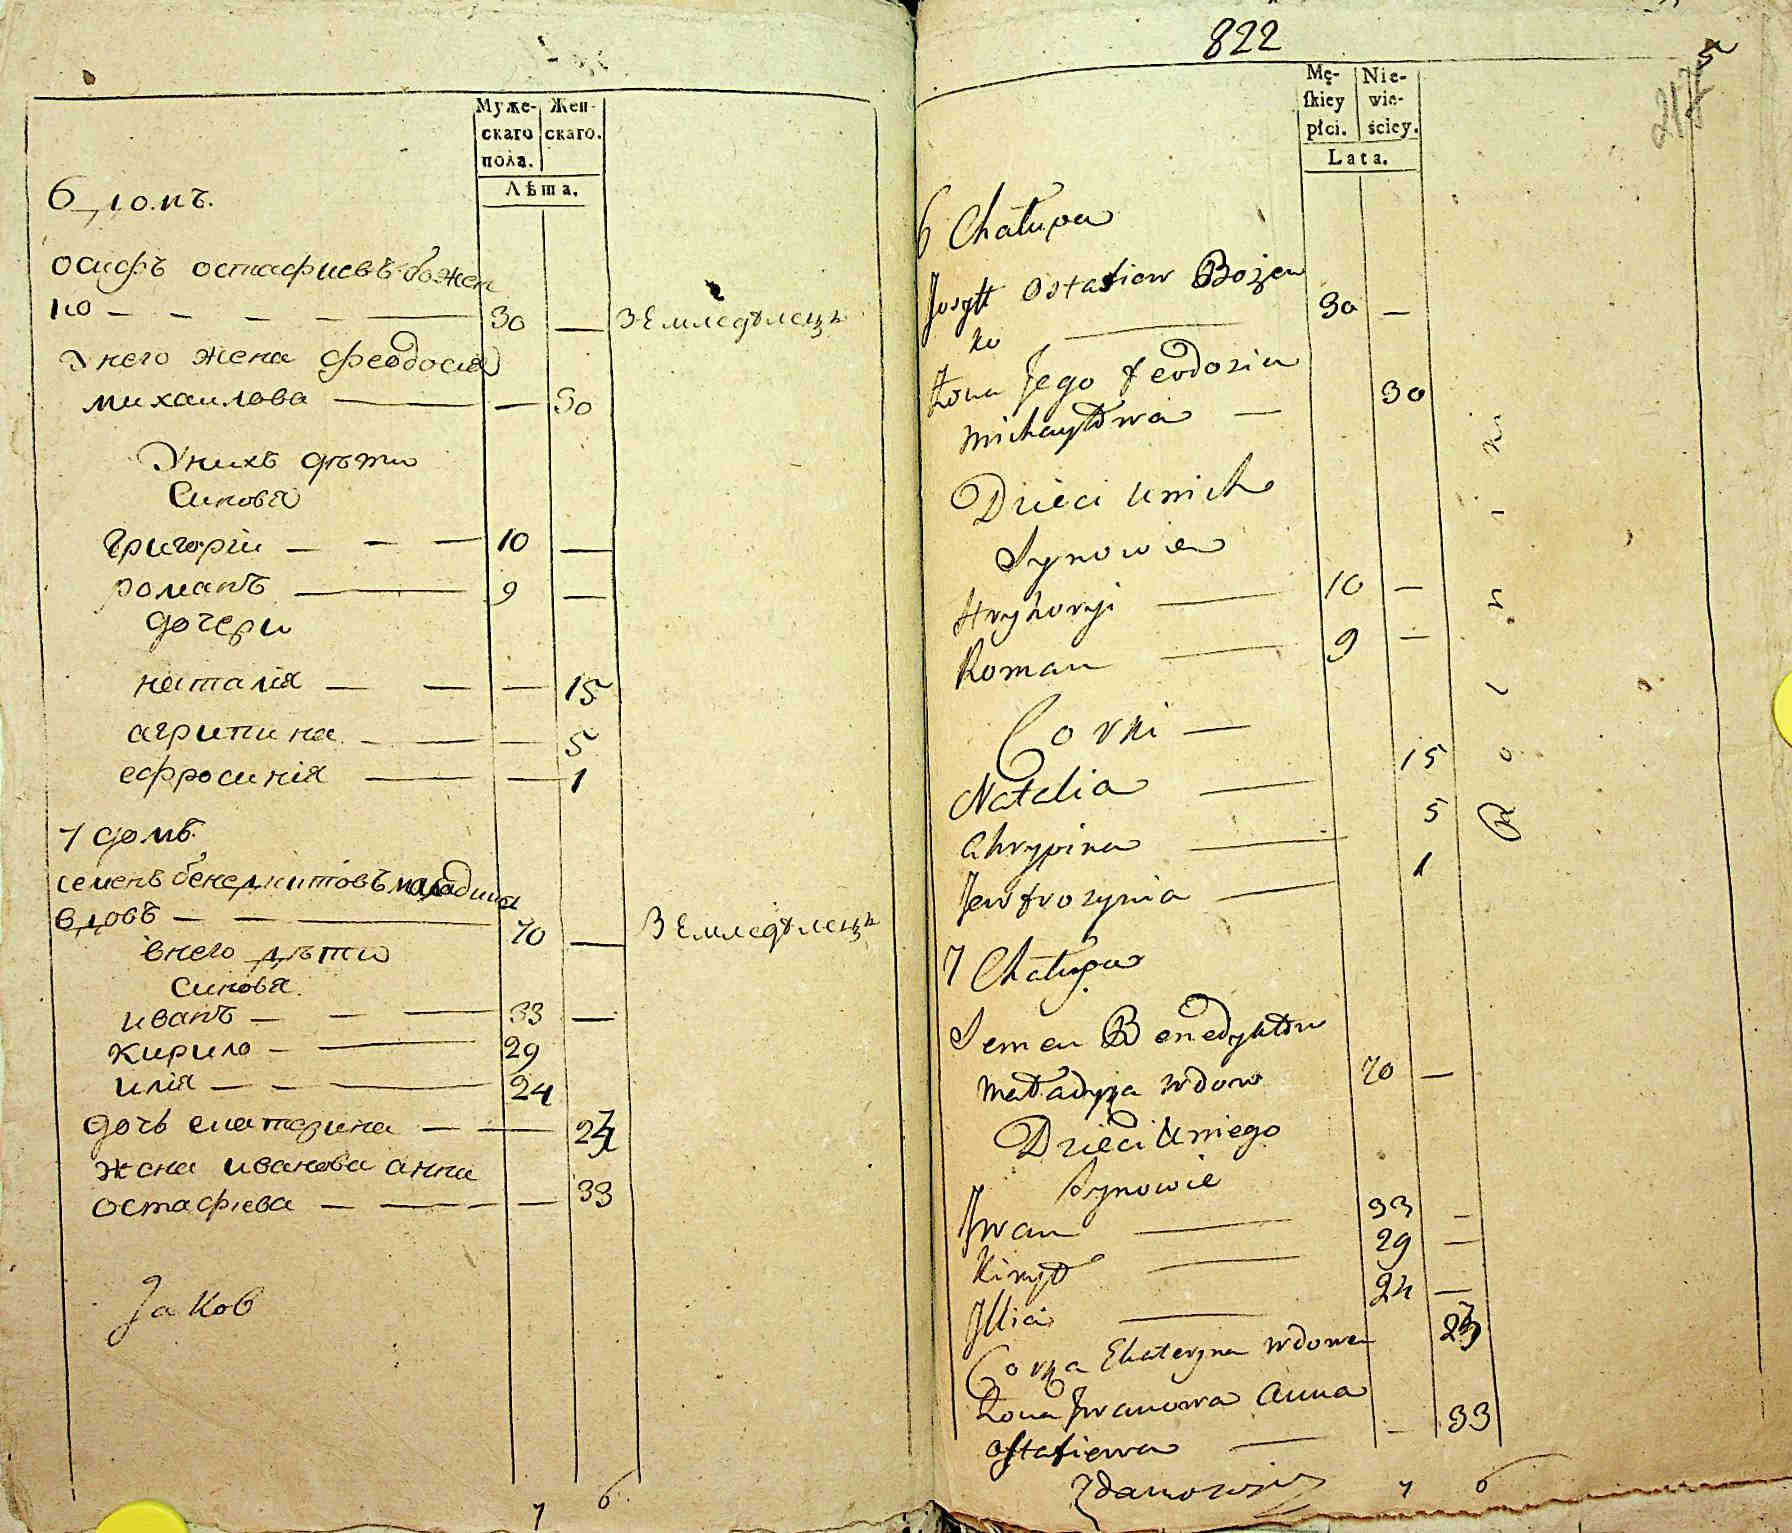 Муже- Жен-
скаго скаго.
пола.
Лѣта.
6 домъ.
осифъ остафиевъ божен
ко — — — — — 30 — землєдѣлєцъ
У него жена феодосия
михаилова — — 30
У нихъ дѣти
Синовя
григорiи — — — 10 —
романъ — 9 —
дочери
наталiя — — — 15
агрипина — — — 5
ефросинiя — — 1
7 домъ.
семенъ бенедиктовъ маладига
вдовъ — — — 70 — Землєдѣлєцъ
в него дѣти
Синовя.
иванъ — — — 33 —
кирило — — 29
илiя — — — 24
дочь екатерина — — 23
жена иванова анна
остафiева — — — — 33
Jakow
7 6
822
5
217
Mę- Nie-
skiey wie-
płci. ściey.
Lata.
6 Chałupa
Josyff Ostafiew Bożen
ko — 30 —
Żona Jego Feodosia
Michayłowa — 30
Dzieci u nich
Synowie
Hryhoryi — 10 —
Roman — 9 —
Corki —
Natalia — 15
Ahrypina — 5
Jewfrozynia — 1
7 Chałupa
Semen Benedyktow
Maładyga wdow 70 —
Dzieci u niego
Synowie
Jwan — 33 —
Kirył — 29 —
Jllia — 24 —
Corka Ekateryna wdowa 23
Żona Jwanowa Anna
Ostafiewa — — 33
Zdanowicz
7 6
Rolnik